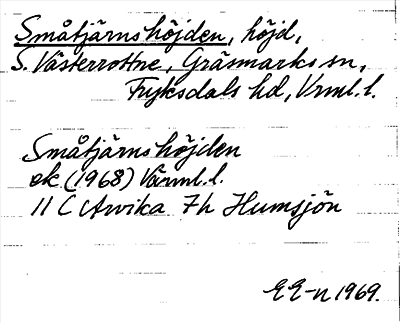 Småtjärnshöjden, höjd,
S. Västerrottne, Gräsmarks sn,
Fryksdals hd, Vrml. l.
Småtjärnshöjden
ek. (1968) Värml. l.
11 C Arvika 7h Humsjön
EE-n 1969.